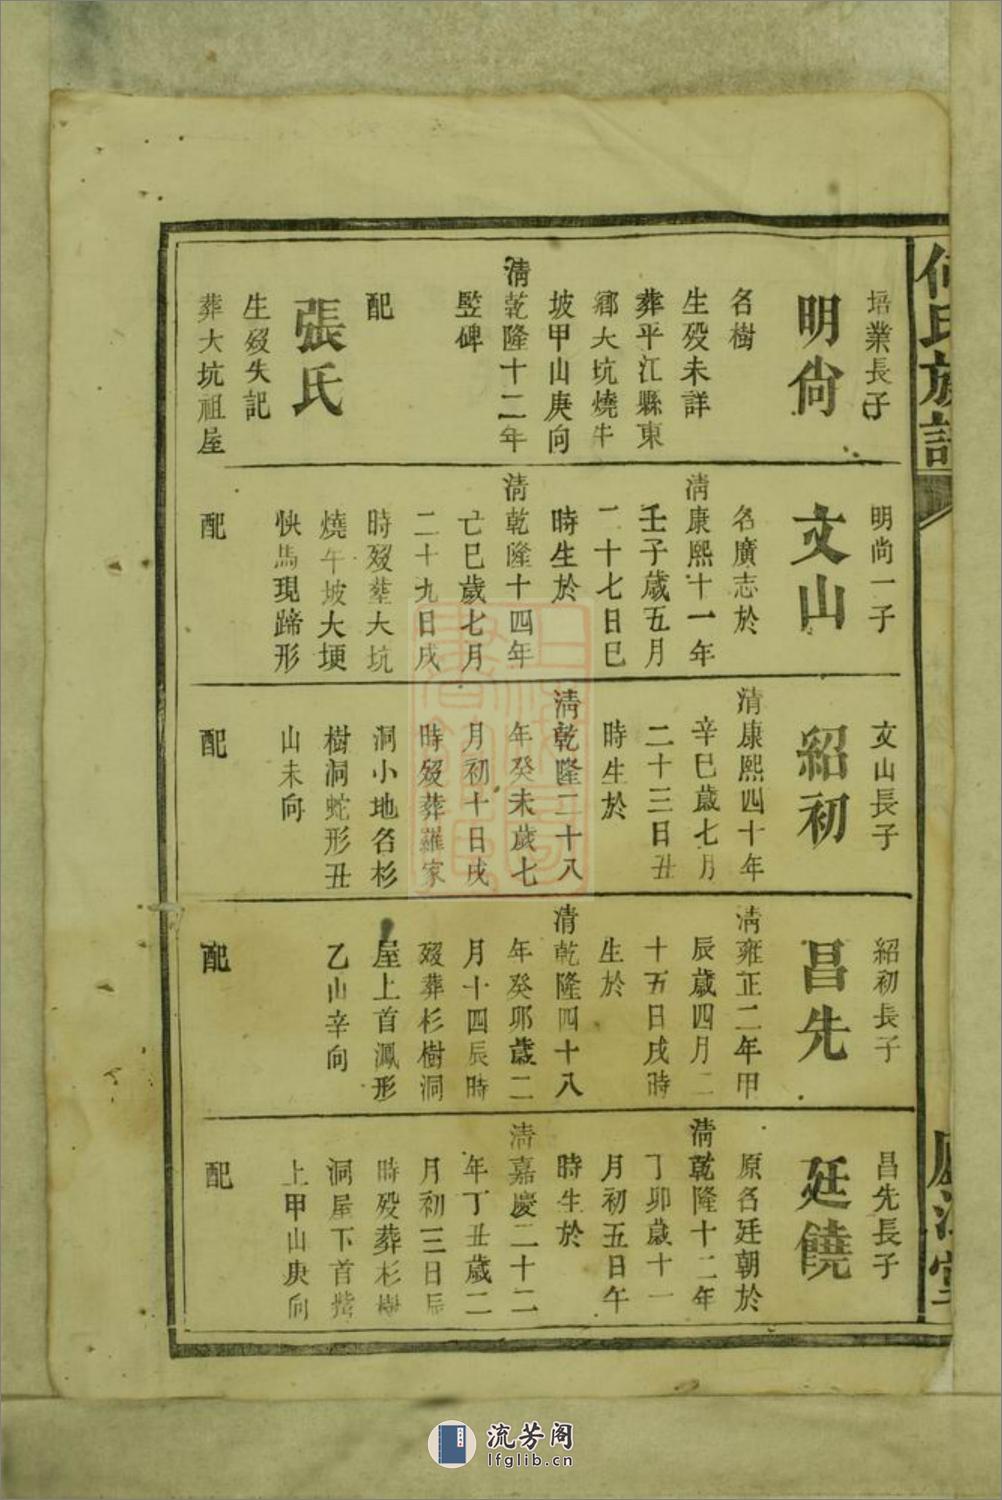 何氏族譜
培業長子
明尙
名樹
生殁未詳
葬平江縣東
鄉大坑燒牛
坡甲山庚向
淸乾隆十二年
竪碑
配
張氏
生殁失記
葬大坑祖屋
明尙一子
文山
名廣志於
淸康熙十一年
壬子歲五月
二十七日巳
時生於
淸乾隆十四年
亡巳歲七月
二十九日戌
時殁塟大坑
燒午坡大埂
快馬現蹄形
配
文山長子
紹初
清康熙四十年
辛巳歲七月
二十三日丑
時生於
淸乾隆二十八
年癸未歲七
月初十日戌
時殁葬羅家
洞小地名杉
樹洞蛇形丑
山未向
配
紹初長子
昌先
淸雍正二年甲
辰歲四月二
十五日戌時
生於
清乾隆四十八
年癸卯歲二
月十四辰時
殁葬杉樹洞
屋上首鳳形
乙山辛向
配
昌先長子
廷饒
原名廷朝於
淸乾隆十二年
丁卯歲十一
月初五日午
時生於
淸嘉慶二十二
年丁丑歲二
月初三日辰
時殁葬杉樹
洞屋下首
上甲山庚向
配
廬江堂
流芳阁
lfglib.cn